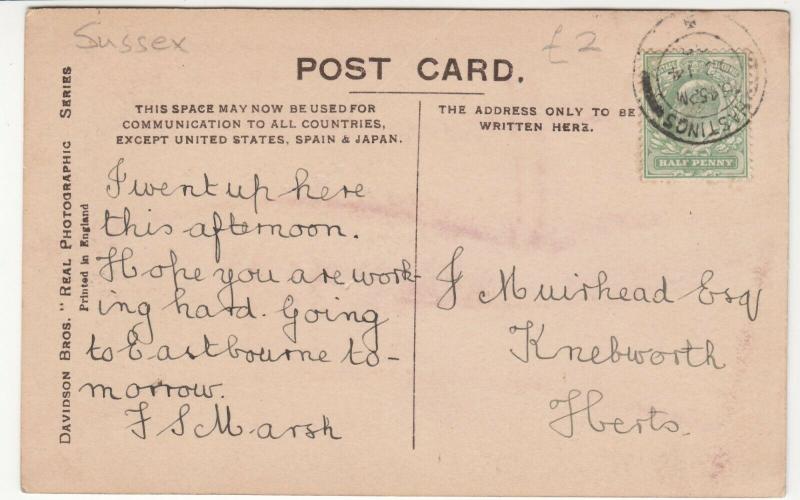 Sussex
£2
POST CARD.
THIS SPACE MAY NOW BE USED FOR
COMMUNICATION TO ALL COUNTRIES,
EXCEPT UNITED STATES, SPAIN & JAPAN.
THE ADDRESS ONLY TO BE
WRITTEN HERE.
HASTINGS
45PM
HALF PENNY
DAVIDSON BROS. "REAL PHOTOGRAPHIC SERIES
Printed in England
I went up here
this afternoon.
Hope you are work-
ing hard. Going
to Eastbourne to-
morrow.
F S Marsh
J Muirhead Esq
Knebworth
Herts.